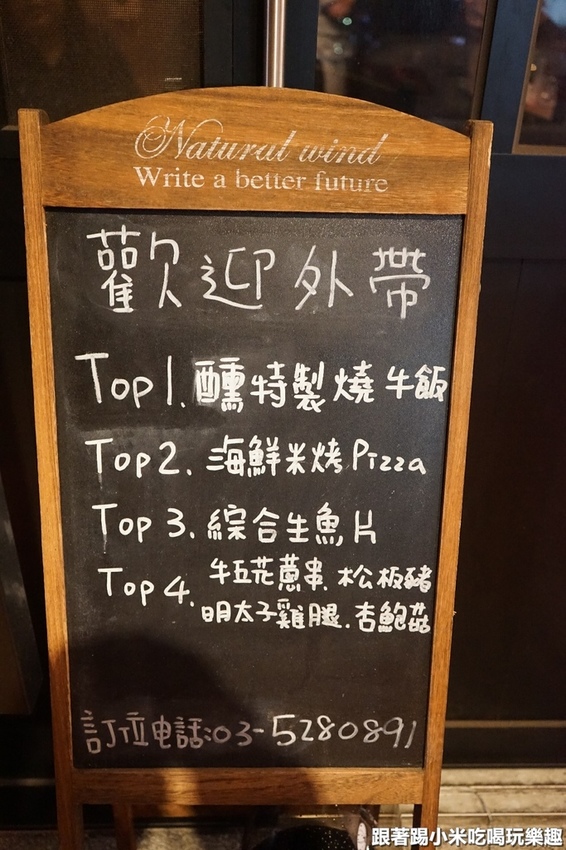 Natural wind
Write a better future
歡迎外帶
Top 1. 醺特製燒牛飯
Top 2. 海鮮米烤Pizza
Top 3. 綜合生魚片
Top 4. 牛五花蔥串、松板豬
明太子雞腿.杏鮑菇
訂位電話:03-5280891
跟著踢小米吃喝玩樂趣